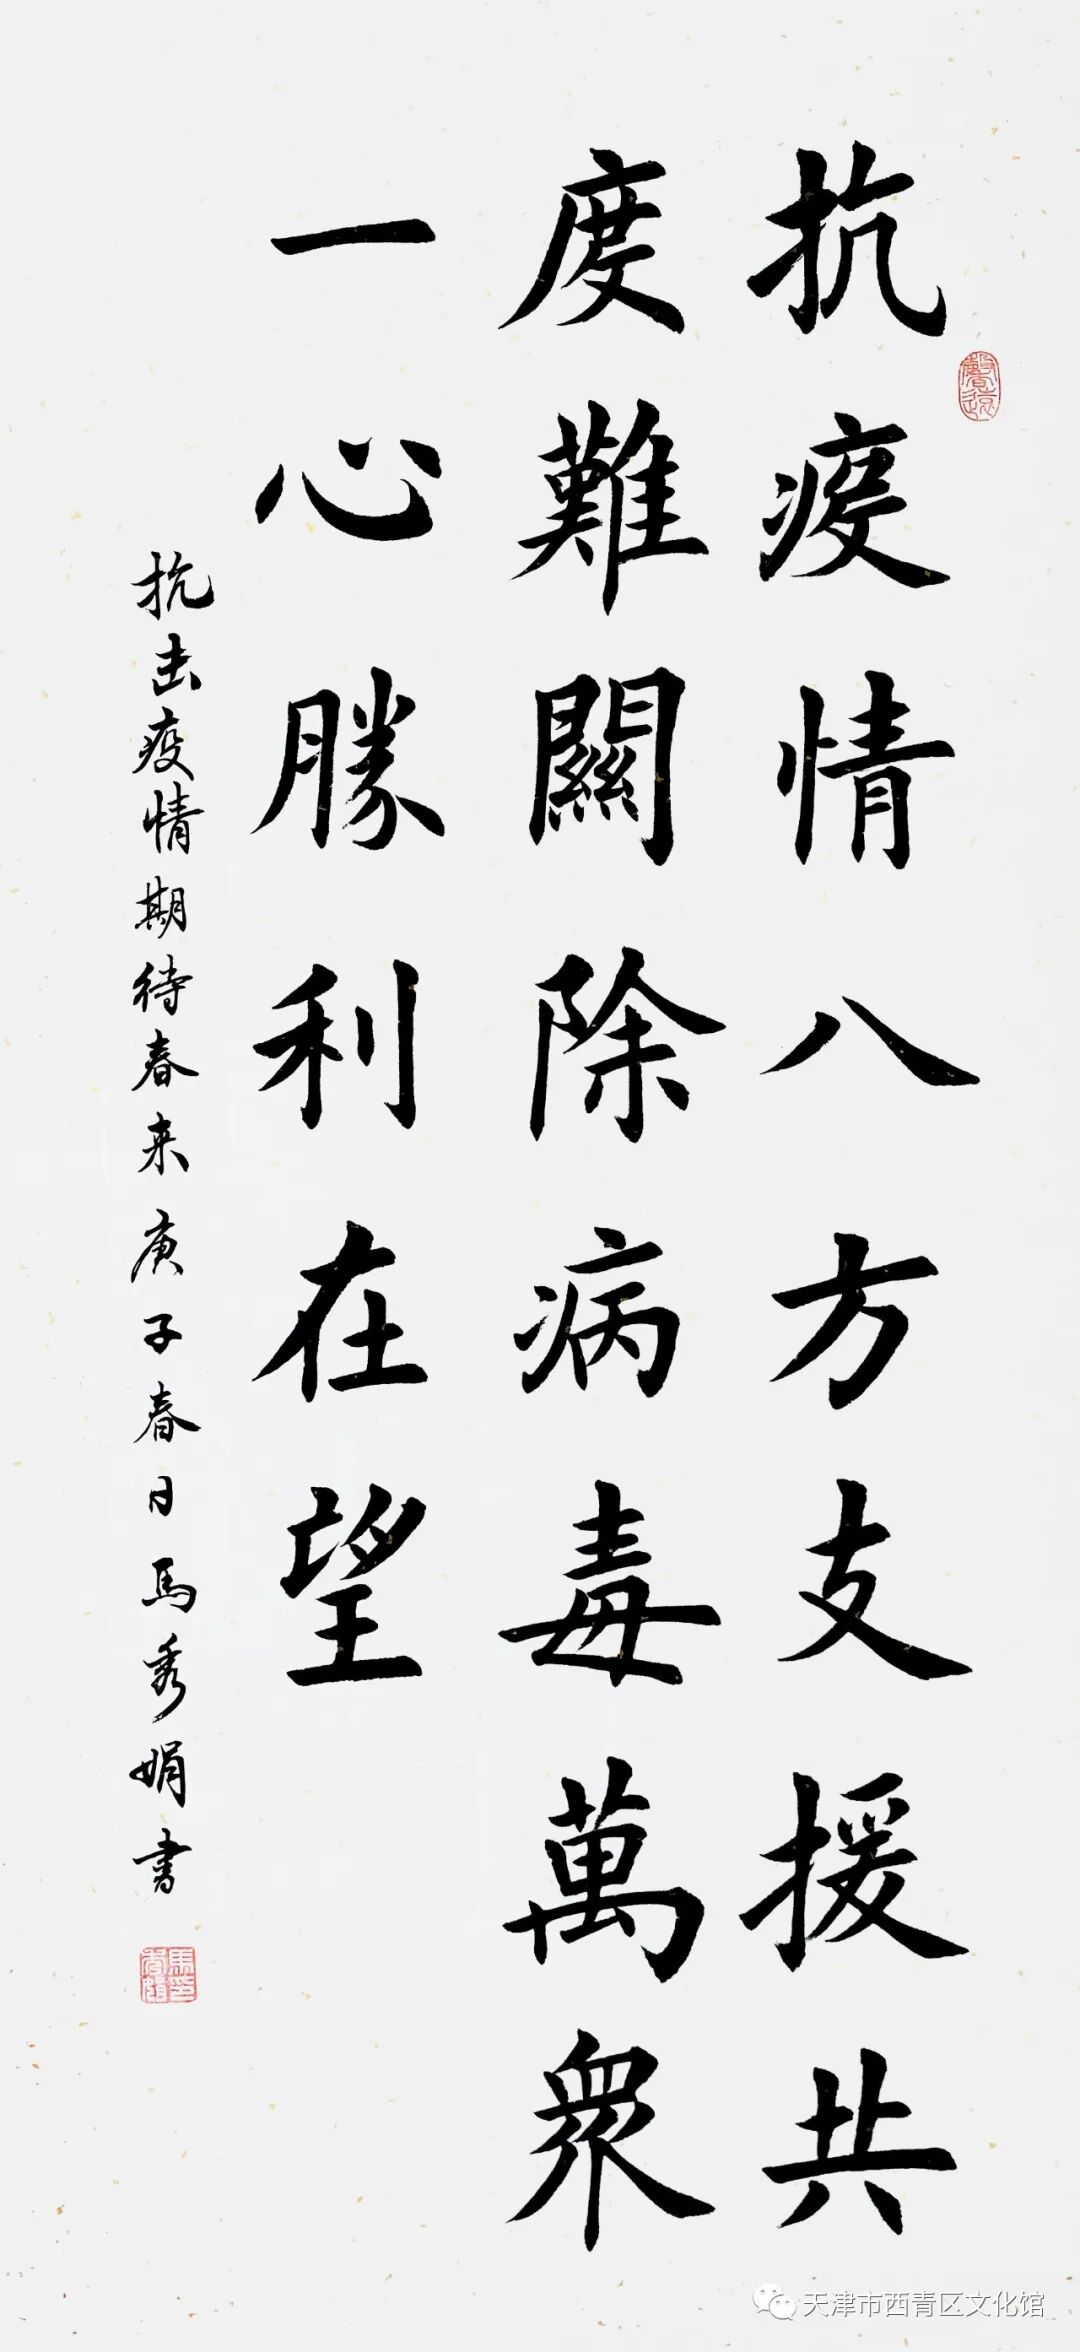 抗疫情八方支援共
度難關除病毒萬衆
一心勝利在望
抗击疫情期待春来庚子春日馬秀娟書
馨遠
馬秀娟印
天津市西青区文化馆